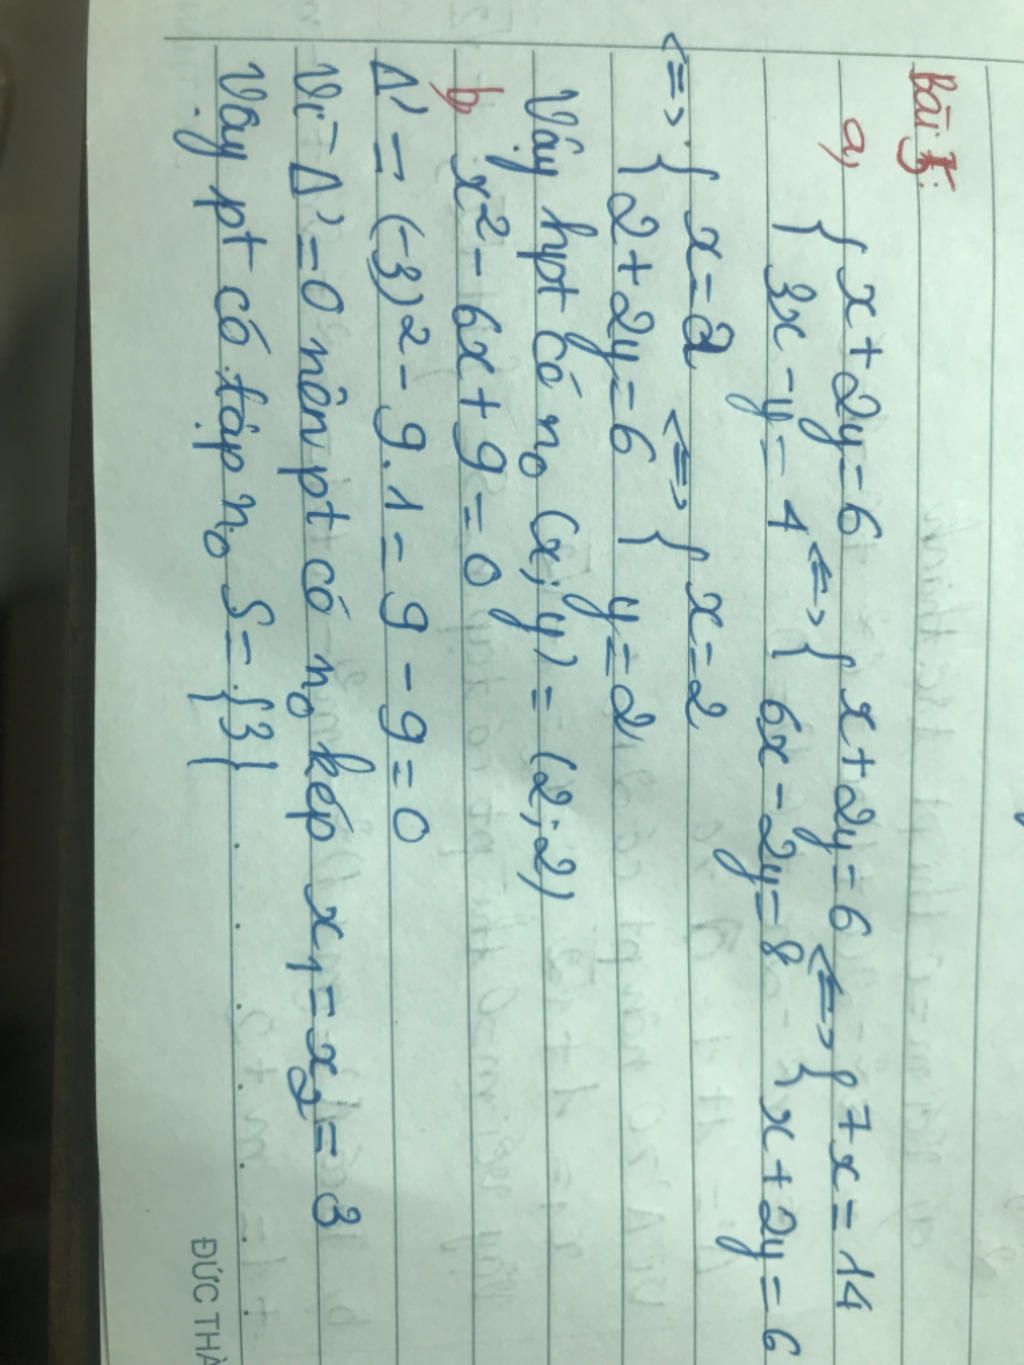 Bài 5:
a, { x + 2y = 6 <=> { x + 2y = 6 <=> { 7x = 14
3x - y = 4 6x - 2y = 8 x + 2y = 6
<=> { x = 2 <=> { x = 2
2 + 2y = 6 y = 2
Vậy hpt có n₀ (x; y) = (2; 2)
b, x² - 6x + 9 = 0
Δ' = (-3)² - 9.1 = 9 - 9 = 0
Vì Δ' = 0 nên pt có n₀ kép x₁ = x₂ = 3
Vậy pt có tập n₀ S = {3}
ĐỨC THÀ